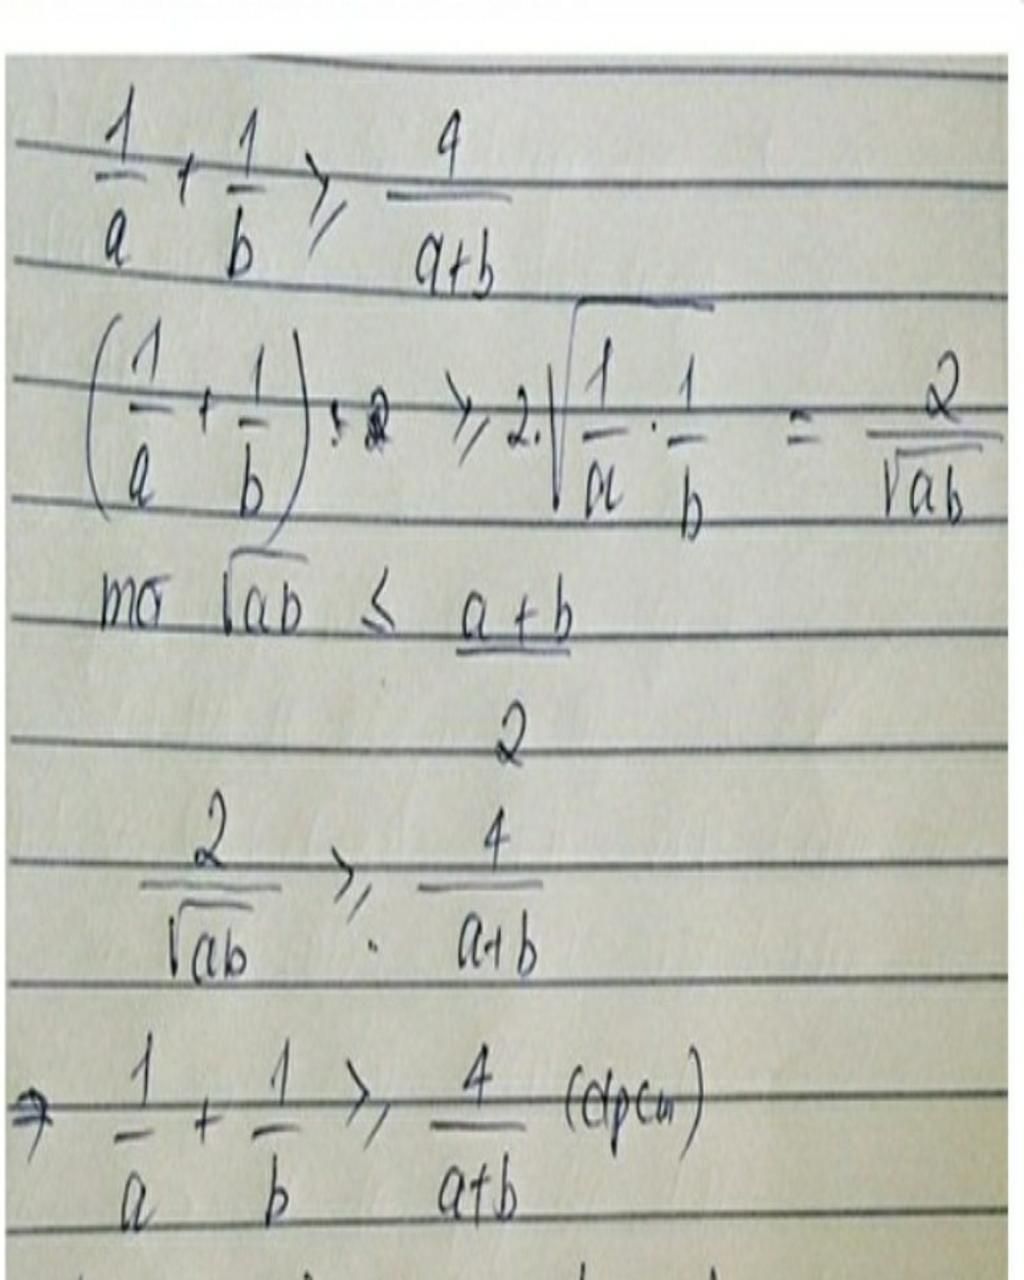 1/a + 1/b ≥ 4/(a+b)
(1/a + 1/b) ≥ 2.√(1/a . 1/b) = 2/√ab
mà √ab ≤ (a+b)/2
2/√ab ≥ 4/(a+b)
⇒ 1/a + 1/b ≥ 4/(a+b) (đpcm)